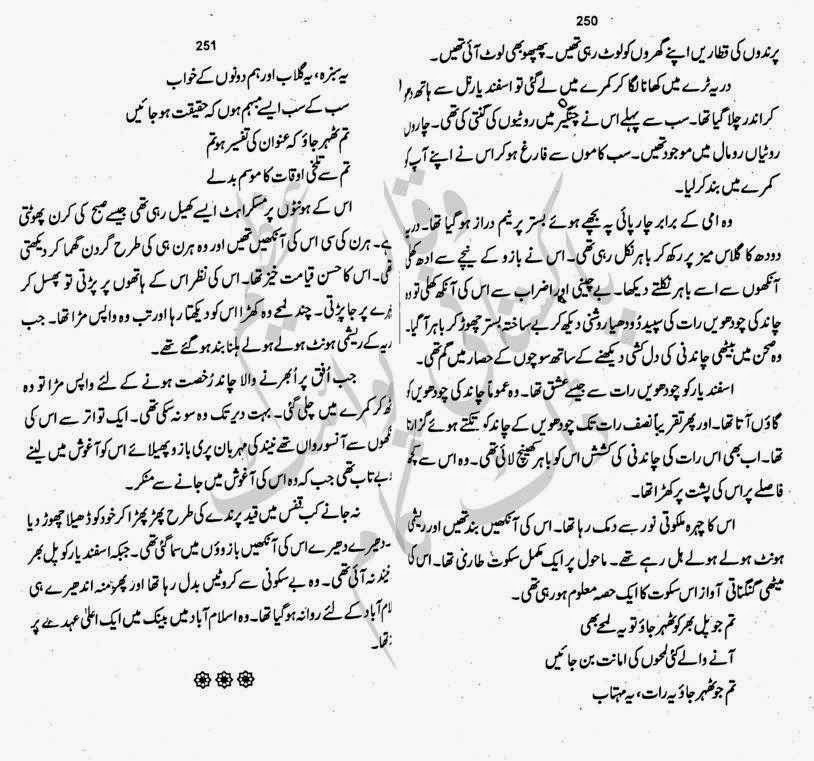 250
پرندوں کی قطاریں اپنے گھروں کو لوٹ رہی تھیں۔ پھپھو بھی لوٹ آئی تھیں۔
دریہ ٹرے میں کھانا لگا کر کمرے میں لے گئی تو اسفند یار نل سے ہاتھ دھو
کر اندر چلا گیا تھا۔ سب سے پہلے اس نے چنگیر میں روٹیوں کی گنتی کی تھی۔ چاروں
روٹیاں رومال میں موجود تھیں۔ سب کاموں سے فارغ ہو کر اس نے اپنے آپ کو
کمرے میں بند کر لیا۔
وہ امی کے برابر چارپائی پہ بچھے ہوئے بستر پر نیم دراز ہو گیا تھا۔ دریہ
دودھ کا گلاس میز پر رکھ کر باہر نکل رہی تھی۔ اس نے بازو کے نیچے سے ادھ کھلی
آنکھوں سے اسے باہر نکلتے دیکھا۔ بے چینی اور اضراب سے اس کی آنکھ کھلی تو وہ
چاند کی چودھویں رات کی سپید دُودھیا روشنی دیکھ کر بے ساختہ بستر چھوڑ کر باہر آ گیا۔
وہ صحن میں بیٹھی چاندنی کی دل کشی دیکھنے کے ساتھ سوچوں کے حصار میں گم تھی۔
اسفند یار کو چودھویں رات سے جیسے عشق تھا۔ وہ عموماً چاند کی چودھویں کو
گاؤں آتا تھا۔ اور پھر تقریباً نصف رات تک چودھویں کے چاند کو تکتے ہوئے گزارتا
تھا۔ اب بھی اس رات کی چاندنی کی کشش اس کو باہر کھینچ لائی تھی۔ وہ اس سے کچھ
فاصلے پر اس کی پشت پر کھڑا تھا۔
اس کا چہرہ ملکوتی نور سے دمک رہا تھا۔ اس کی آنکھیں بند تھیں اور ریشمی
ہونٹ ہولے ہولے ہل رہے تھے۔ ماحول پر ایک مکمل سکوت طاری تھا۔ اس کی
میٹھی گنگناتی آواز اس سکوت کا ایک حصہ معلوم ہو رہی تھی۔
تم جو پل بھر کو ٹھہر جاؤ تو یہ لمحے بھی
آنے والے کئی لمحوں کی امانت بن جائیں
تم جو ٹھہر جاؤ یہ رات، یہ مہتاب
251
یہ سبزہ، یہ گلاب اور ہم دونوں کے خواب
سب کے سب ایسے مبہم ہوں کہ حقیقت ہو جائیں
تم ٹھہر جاؤ کہ عنوان کی تفسیر ہو تم
تم سے تلخی اوقات کا موسم بدلے
اس کے ہونٹوں پر مسکراہٹ ایسے کھیل رہی تھی جیسے صبح کی کرن پھوٹتی
ہے۔ ہرن کی سی اس کی آنکھیں تھیں اور وہ ہرن ہی کی طرح گردن گھما کر دیکھتی
تھی۔ اس کا حسن قیامت خیز تھا۔ اس کی نظر اس کے ہاتھوں پر پڑتی تو پھسل کر
پر جا پڑتی۔ چند لمحے وہ کھڑا اس کو دیکھتا رہا اور تب وہ واپس مڑا تھا۔ جب
ریہ کے ریشمی ہونٹ ہولے ہولے ہلنا بند ہو گئے تھے۔
جب اُفق پر اُبھرنے والا چاند رُخصت ہونے کے لئے واپس مڑا تو وہ
ٹھ کر کمرے میں چلی گئی۔ بہت دیر تک وہ سو نہ سکی تھی۔ ایک تواتر سے اس کی
نکھوں سے آنسو رواں تھے نیند کی مہربان پری بازو پھیلائے اس کو آغوش میں لینے
بے تاب تھی جب کہ وہ اس کی آغوش میں جانے سے منکر۔
نہ جانے کب قفس میں قید پرندے کی طرح پھڑ پھڑا کر خود کو ڈھیلا چھوڑ دیا
۔ دھیرے دھیرے اس کی آنکھیں بازوؤں میں سما گئی تھی۔ جبکہ اسفند یار کو پل بھر
نیند نہ آئی تھی۔ وہ بے سکونی سے کروٹیں بدل رہا تھا اور پھر منہ اندھیرے ہی
لام آباد کے لئے روانہ ہو گیا تھا۔ وہ اسلام آباد میں بینک میں ایک اعلیٰ عہدے پر
تھا۔